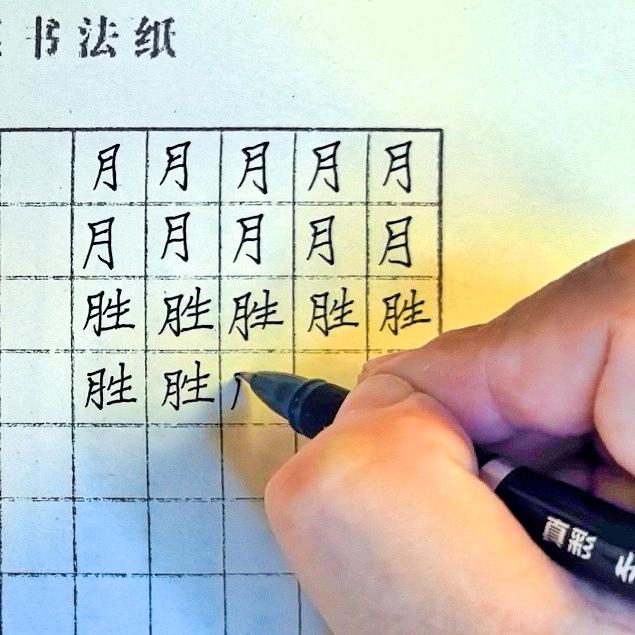 书法纸
月月月月月
月月月月月
胜胜胜胜胜
胜胜
真彩